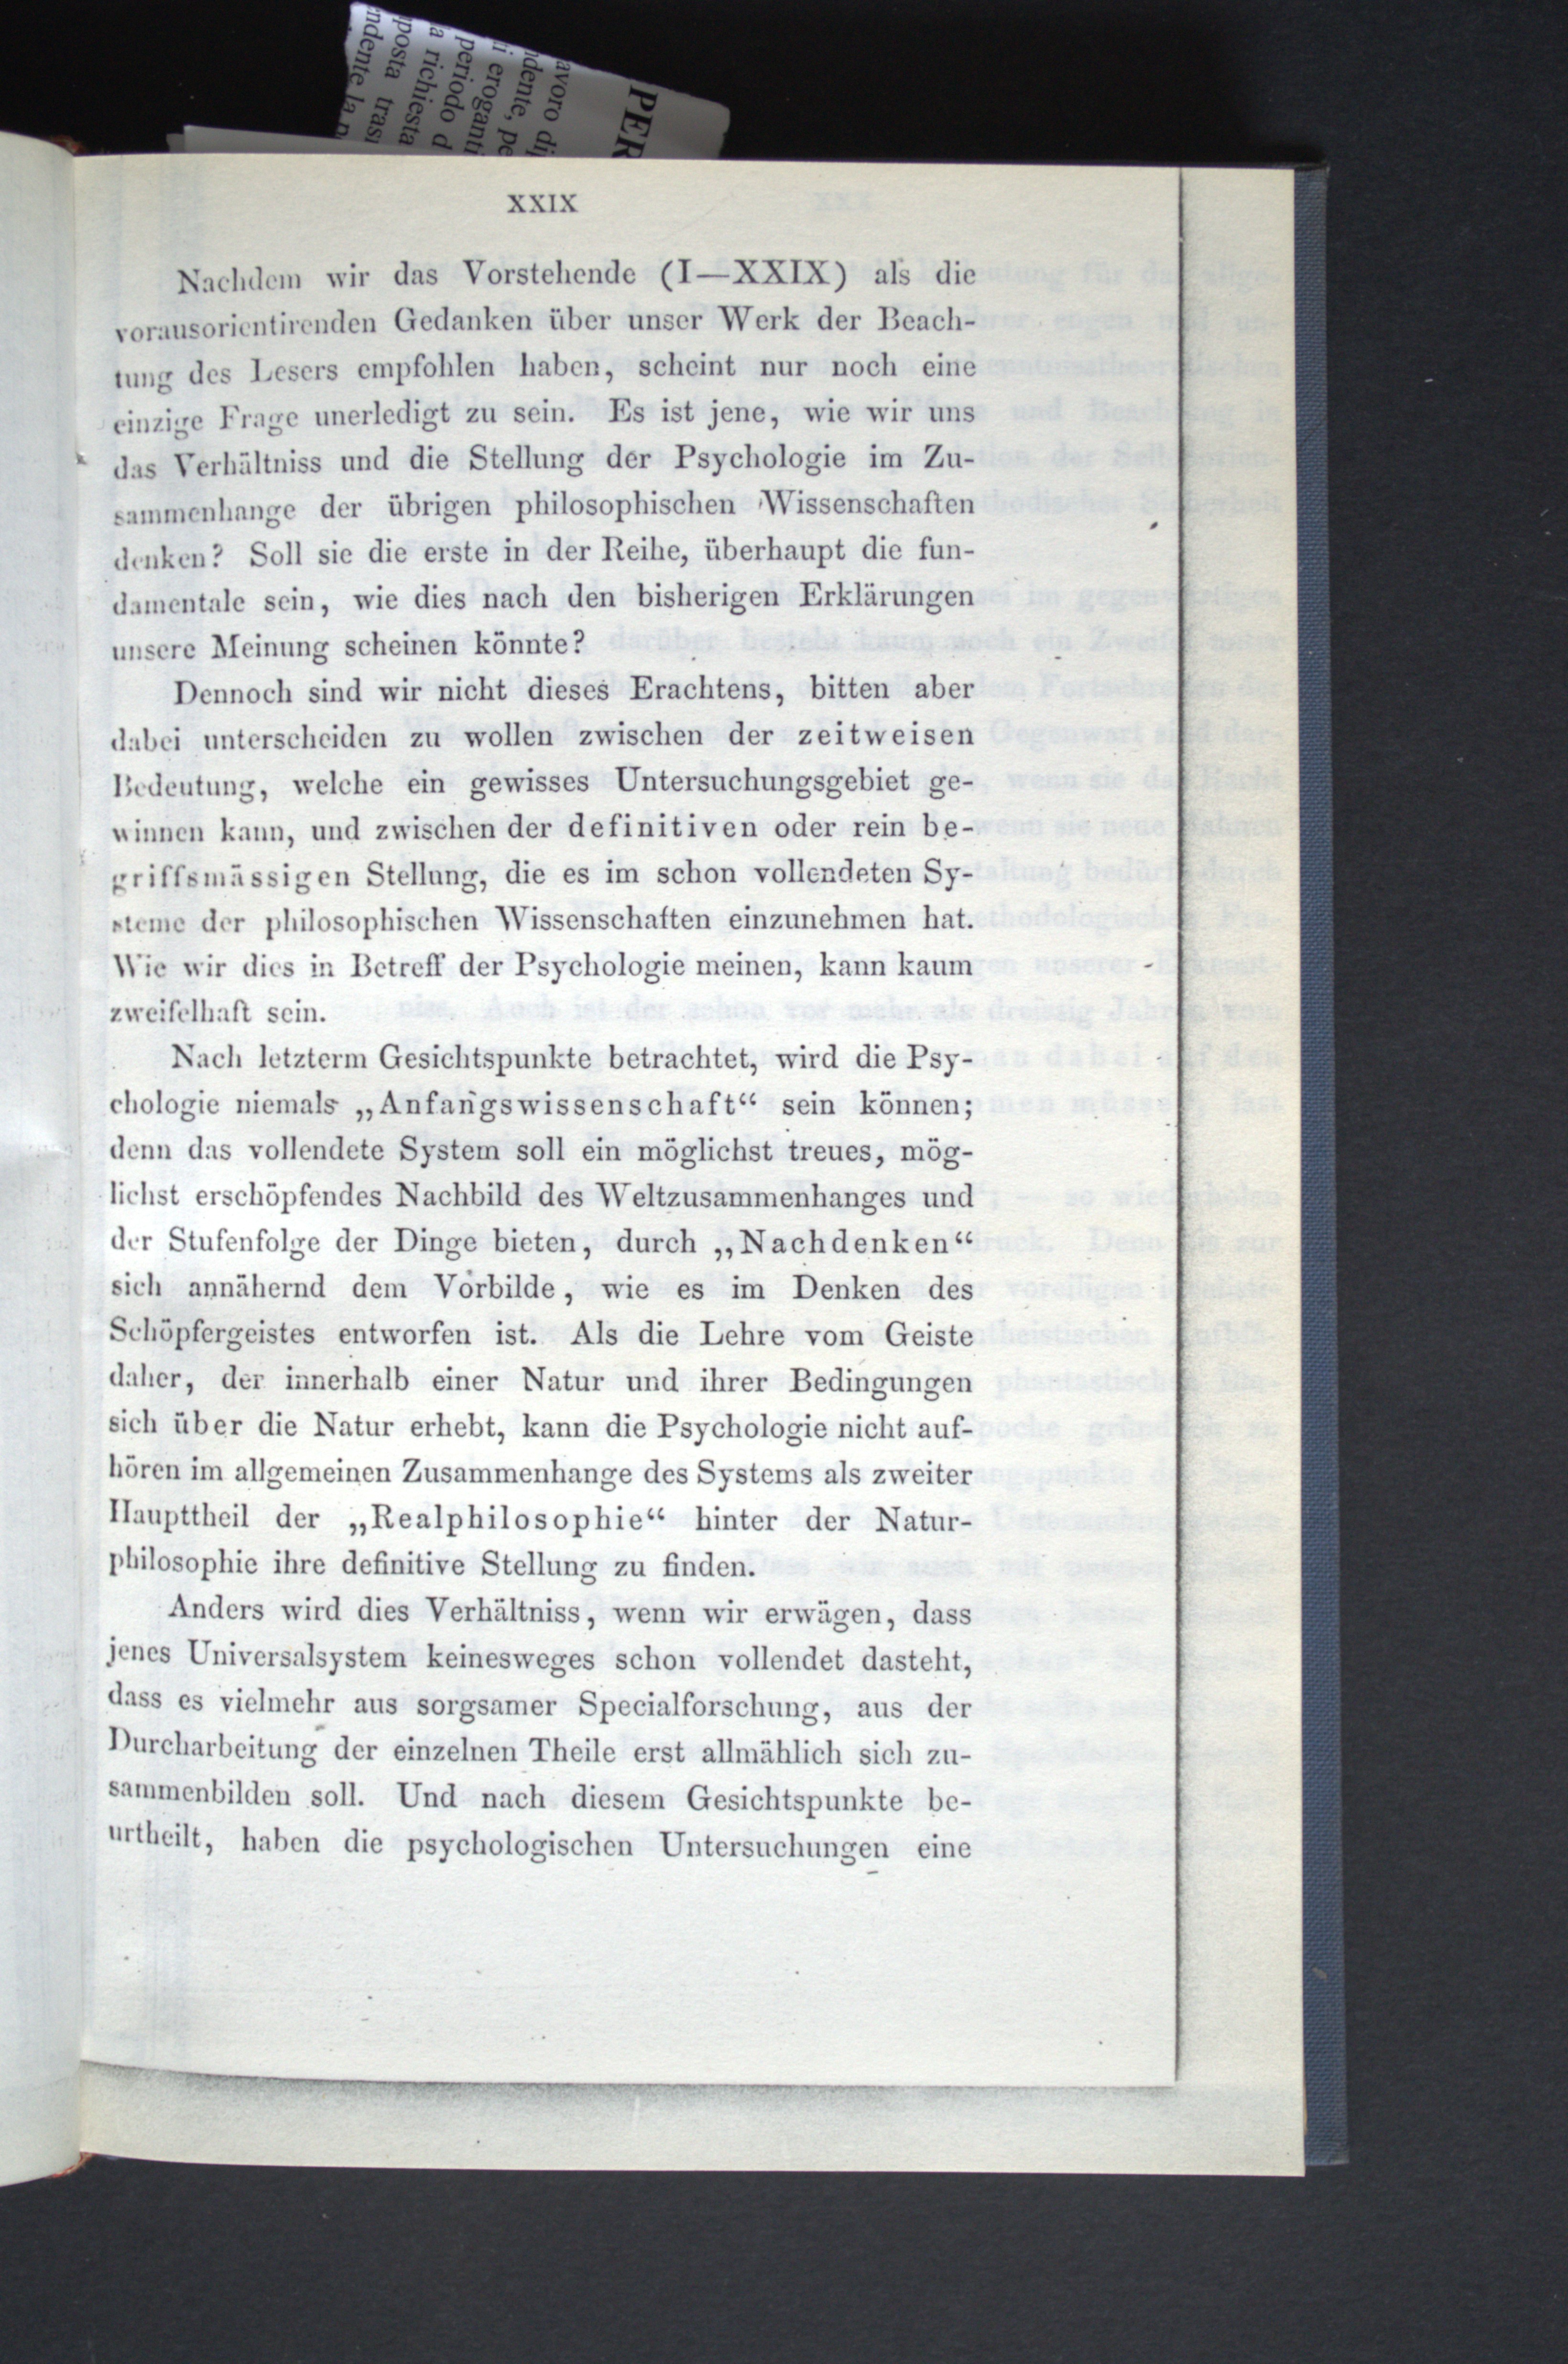 XXIX
Nachdem wir das Vorstehende (I—XXIX) als die
vorausorientirenden Gedanken über unser Werk der Beach-
tung des Lesers empfohlen haben, scheint nur noch eine
einzige Frage unerledigt zu sein. Es ist jene, wie wir uns
das Verhältniss und die Stellung der Psychologie im Zu-
sammenhange der übrigen philosophischen Wissenschaften
denken? Soll sie die erste in der Reihe, überhaupt die fun-
damentale sein, wie dies nach den bisherigen Erklärungen
unsere Meinung scheinen könnte?
Dennoch sind wir nicht dieses Erachtens, bitten aber
dabei unterscheiden zu wollen zwischen der zeitweisen
Bedeutung, welche ein gewisses Untersuchungsgebiet ge-
winnen kann, und zwischen der definitiven oder rein be-
griffsmässigen Stellung, die es im schon vollendeten Sy-
steme der philosophischen Wissenschaften einzunehmen hat.
Wie wir dies in Betreff der Psychologie meinen, kann kaum
zweifelhaft sein.
Nach letzterm Gesichtspunkte betrachtet, wird die Psy-
chologie niemals „Anfangswissenschaft“ sein können;
denn das vollendete System soll ein möglichst treues, mög-
lichst erschöpfendes Nachbild des Weltzusammenhanges und
der Stufenfolge der Dinge bieten, durch „Nachdenken“
sich annähernd dem Vorbilde, wie es im Denken des
Schöpfergeistes entworfen ist. Als die Lehre vom Geiste
daher, der innerhalb einer Natur und ihrer Bedingungen
sich über die Natur erhebt, kann die Psychologie nicht auf-
hören im allgemeinen Zusammenhange des Systems als zweiter
Haupttheil der „Realphilosophie“ hinter der Natur-
philosophie ihre definitive Stellung zu finden.
Anders wird dies Verhältniss, wenn wir erwägen, dass
jenes Universalsystem keinesweges schon vollendet dasteht,
dass es vielmehr aus sorgsamer Specialforschung, aus der
Durcharbeitung der einzelnen Theile erst allmählich sich zu-
sammenbilden soll. Und nach diesem Gesichtspunkte be-
urtheilt, haben die psychologischen Untersuchungen eine